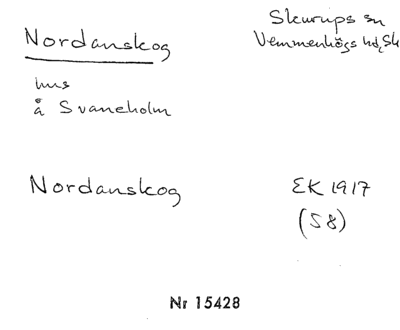 Nordanskog
Skurups sn
Vemmenhögs hd, Sk
hus
å Svaneholm
Nordanskog
EK 1917
(S8)
Nr 15428